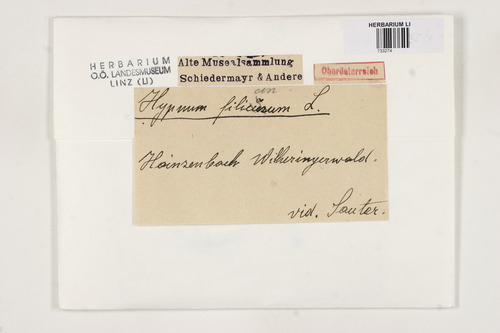 HERBARIUM LI
733274
HERBARIUM
O.Ö. LANDESMUSEUM
LINZ (LI)
Alte Musealsammlung
Schiedermayr & Andere
Oberösterreich
Hypnum filicinum L.
Hainzenbach Wilheringerwald.
vid. Sauter.